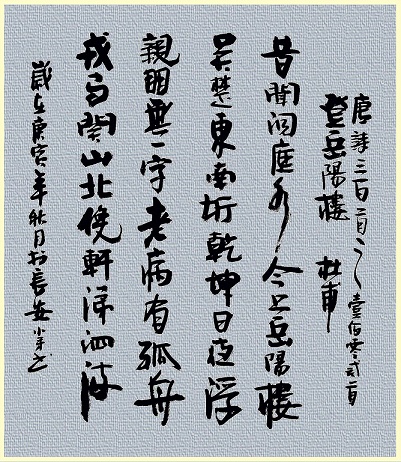 唐詩三百首之壹佰零貳首
登岳陽樓 杜甫
昔聞洞庭水今上岳陽樓
吳楚東南坼乾坤日夜浮
親朋無一字老病有孤舟
戎馬關山北憑軒涕泗流
歲在庚寅年秋月於長安